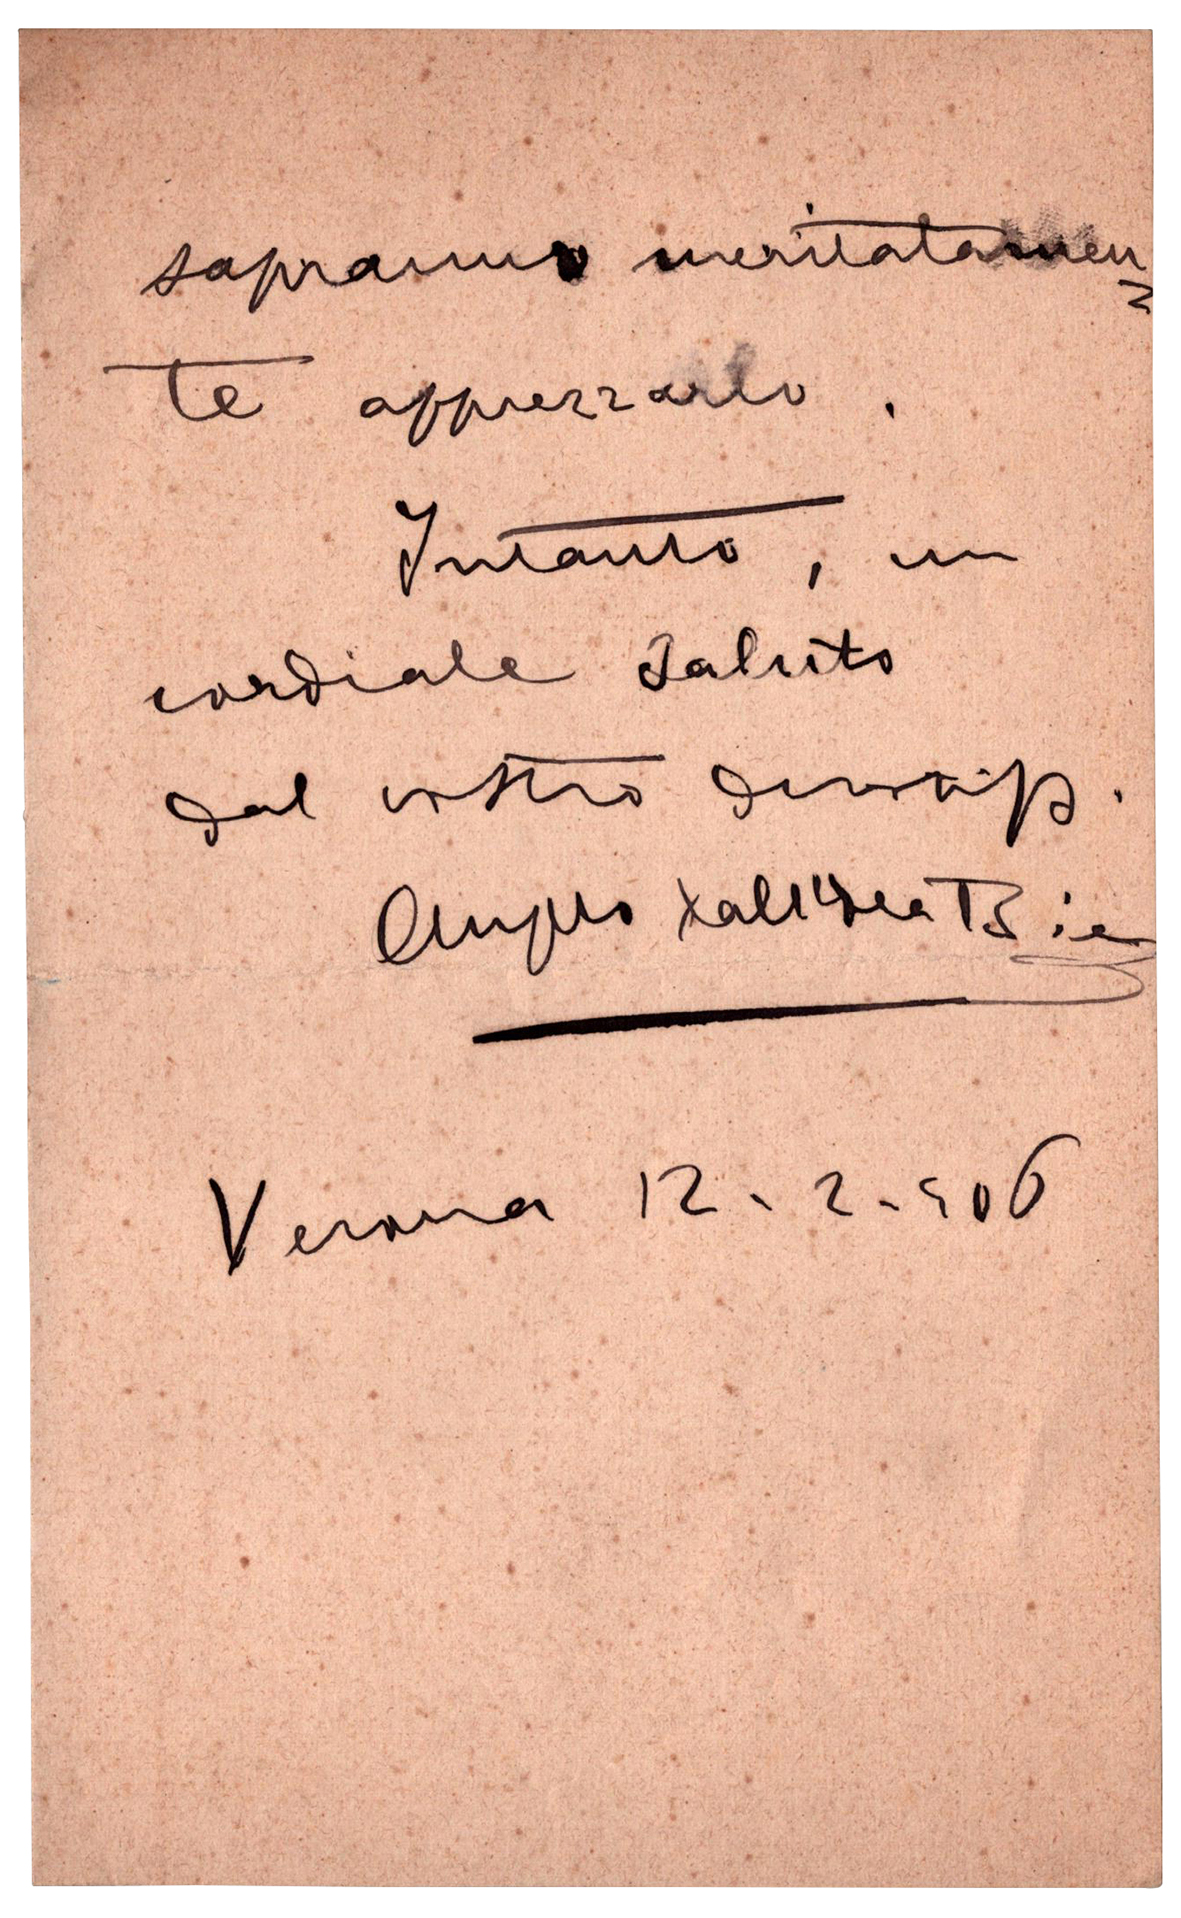 sapranno meritatamen=
te apprezzarlo.
Intanto, un
cordiale saluto
dal vostro devotiss.
Verona 12-2-906